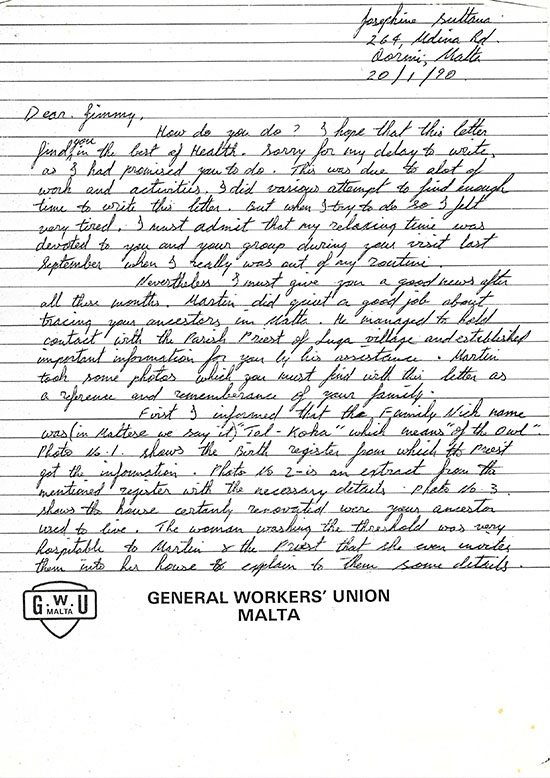 Josephine Sultana
264, Mdina Rd.
Qormi, Malta
20/1/90
Dear Jimmy,
How do you do? I hope that this letter
find you in the best of Health. Sorry for my delay to write,
as I had promised you to do. This was due to alot of
work and activities. I did various attempt to find enough
time to write this letter. But when I try to do so I felt
very tired. I must admit that my relaxing time was
devoted to you and your group during your visit last
September when I really was out of my routine.
Nevertheless I must give you a good news after
all these months. Martin did quiet a good job about
tracing your ancestors in Malta. He managed to hold
contact with the Parish Priest of Luqa village and established
important information for you by his assistance. Martin
took some photos which you must find with this letter as
a reference and rememberance of your family.
First I informed that the Family Nick name
was (in Maltese we say it) "Tal-Koka" which means "of the Owl".
Photo No.1. shows the Birth register from which the Priest
got the information. Photo No 2 - is an extract from the
mentioned register with the necessary details. Photo No 3.
shows the house certanly renovated were your ancestor
used to live. The woman washing the threshold was very
hospitable to Martin & the Priest that she even invites
them into her house to explain to them some details.
G.W.U
MALTA
GENERAL WORKERS' UNION
MALTA